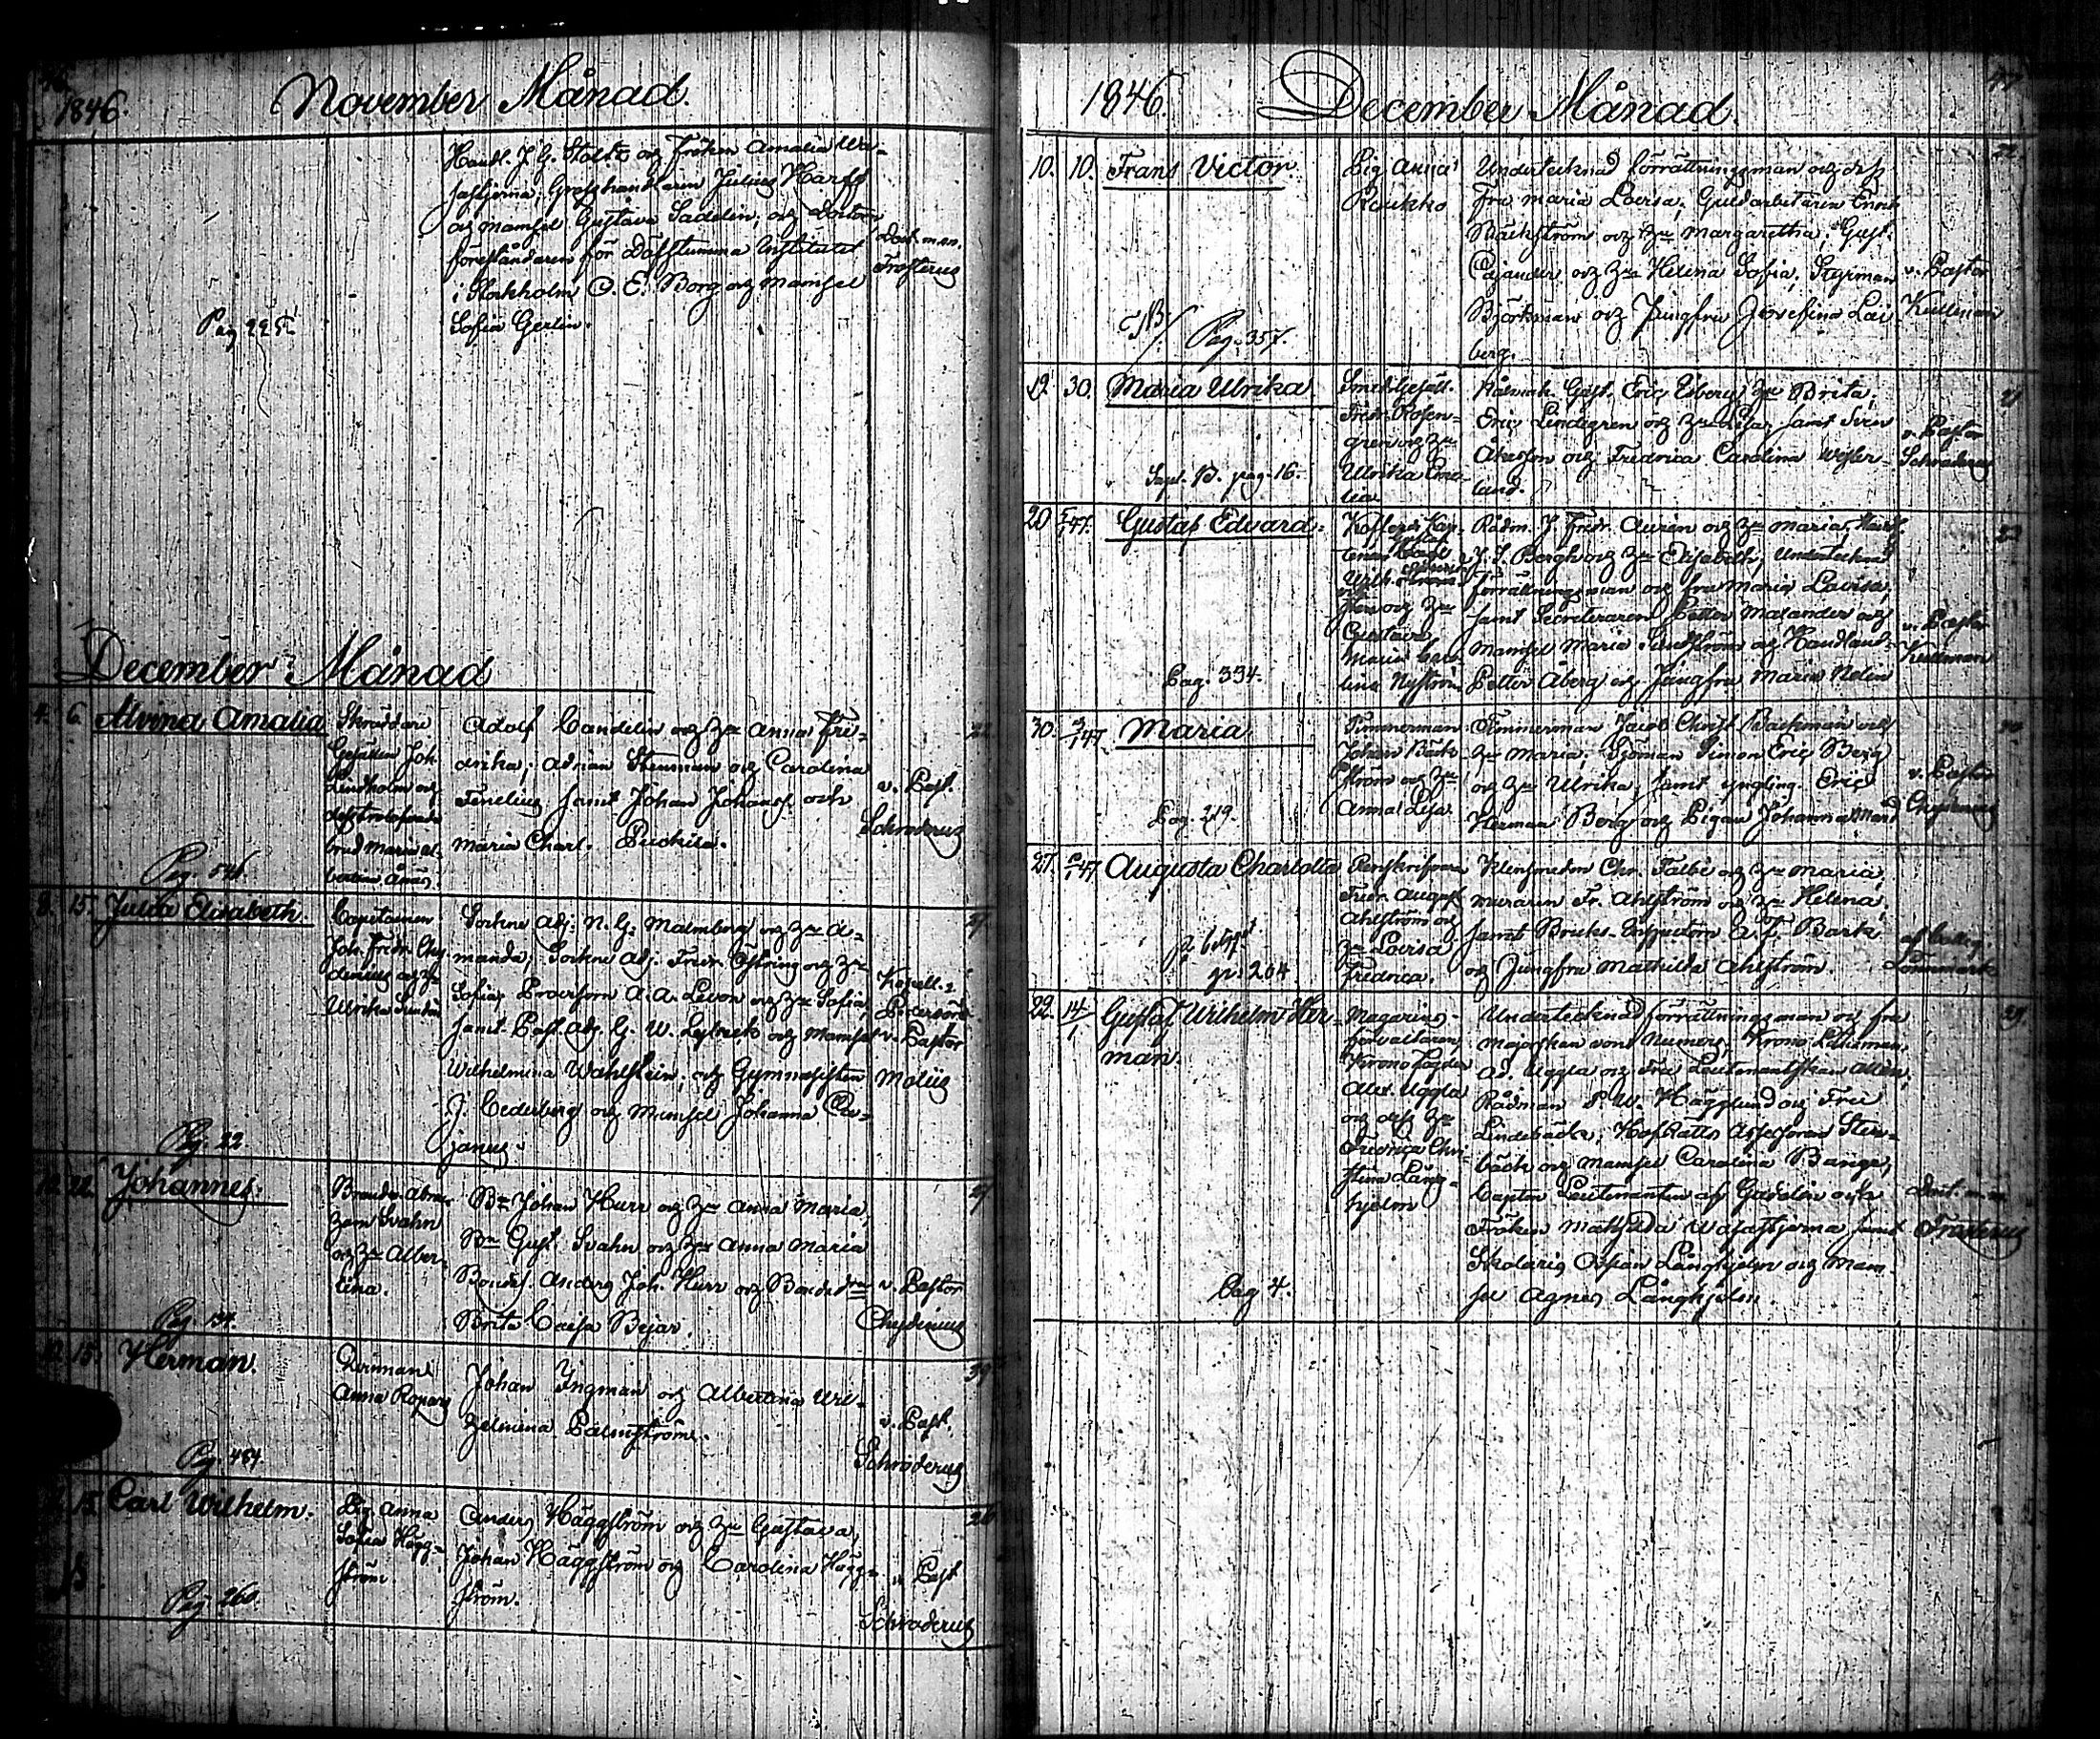 1846. November Månad.
Handl. J. G. Stolte och Fröken Amalia Wa-
sastjerna; Grosshandlaren Julius Harff
och Mamsel Gustava Sadelin; och Doctorn,
föreståndaren för Döfstumma Institutet
i Stockholm O. E. Borg och Mamsel
Sofia Gerlin.
Doct. m.m.
Frosterus
Pag 225.
December Månad
4. 6. Alvina Amalia
Pag. 546.
Skräddare
Gesällen Joh.
Lindholm och
dess trolofvade
brud Maria Al-
bertina
Adolf Candelin och Hu Anna Fre-
drika; Adrian Stenman och Carolina
Fenelius samt Johan Johanss. och
Maria Charl. Puckila.
v. Past.
Schroderus
22
8. 15. Julia Elisabeth.
Pag. 22
Capitainen
Joh. Fredr. Chy-
denius och H.
Ulrika Sundin
Sockne Adj. N. G. Malmberg och Hu A-
manda; Sockne Adj. Fredr. Östring och Hu
Sofia; Provisorn A. A. Levon och Hu Sofia;
samt Past. Adj. G. W. Lybeck och Mamsel
Wilhelmina Wahlstein; och Gymnasisten
J. Cederberg och Mamsel Johanna Ca-
janus.
Kapell. i
Pedersöre
v. Pastor
Moliis
27
22. Johannes.
Bonden Abra-
ham Svahn
och Hu Alber-
tina.
Bn Johan Hurr och Hu Anna Maria,
Bn Gust. Svahn och Hu Anna Maria
Bondes. Anders Joh. Hurr och Bonded.
Brita Caisa Bejar.
v. Pastor
Chydenius
27
15. Herman.
Pag. 484.
Qvinnan
Anna Ropars
Johan Ingman och Albertina Wil-
helmina Palmström.
v. Past.
Schroderus
39
15. Carl Wilhelm.
Pag. 260.
Pig. Anna
Sofia Hägg-
ström.
Anders Häggström och Hu Gustava,
Johan Häggström och Carolina Hägg-
ström.
v. Past
Schroderus
26
1846. December Månad.
10. 10. Frans Victor
Pag. 357.
Pig. Anna
Reukko
Undertecknad förrättningsman och dess
Fru Maria Lovisa; Guldarbetaren Enock
Bäckström och Hu Margaretha; Gust.
Cajander och Hu Helena Sofia; Styrman
Björkman och Jungfru Josefina Lai-
berg.
v. Pastor
Kullman
22.
12. 30. Maria Ulrika
Supl. B. pag. 16.
Smedsgesäll.
Fredr. Rosen-
gren och Hu
Ulrika
Gust. Eric Edberg Hu Brita;
Eric Lindegren och Hu Lisa, samt Sven
Åkesson och Fredrica Carolina Wester-
land.
v. Pastor
Schroderus
20 5/1 47. Gustaf Edvard.
Pag. 334.
Kofferdi Kap-
tenen Gustaf
Carl
Wilh.
sten och Hu
Gustava
Maria Caro-
lina Nyström
Rådm. J. Fredr. Aurén och Hu Maria; Handl.
J. J. Bergh och Hu Elisabeth; Undertecknad
förrättningsman och fru Maria Lovisa,
samt Secreteraren Petter Malander och
Mamsel Maria Sundström och Handland.
Petter Åberg och Jungfru Maria Nelin
v. Pastor
Kullman
30. 3/1 47. Maria
Pag. 219.
Timmerman
Johan Bäck-
ström och Hu
Anna Lisa
Timmerman Jacob Christ. Backman och
Hu Maria; Sjöman Simon Eric Berg
och Hu Ulrika, samt yngling. Eric
Herman Berg och Pigan Johanna Mari
v. Pastor
Chydenius
27. 47 Augusta Charlotta
p. 204
Renskrifvare
Fredr. August
Ahlström och
Hu Lovisa
Fredrica.
Klensmeden Chr. Falbe och Hu Maria;
muraren Fr. Ahlström och Hu Helena;
samt Bruks-Inspectorn A. f. Bark
och Jungfru Mathilda Ahlström
af Colleg.
Lönnmark
22. 14/1 Gustaf Wilhelm Her-
man.
Pag 4.
Magasins-
förvaltaren,
Krono Fogden
Alex. Uggla
och dess Hu
Fredrica Chri-
stina Lång-
hjelm
Undertecknad förrättningsman och fru
Majorskan von Numers; Krono Länsman
Ad. Uggla och Fru Lieutenantskan Allén;
Rådman P. W. Hägglund och Fru
Lindebäck; HofRätts Assessoren Sten-
bäck och Mamsel Carolina Bange;
Capten Lieutenanten af Gadolin och
Fröken Mathilda Wasastjerna samt
Skolaris Ossian Långhjelm och Mam-
sel Agnes Långhjelm.
Doct. m.m.
Frosterus
29.